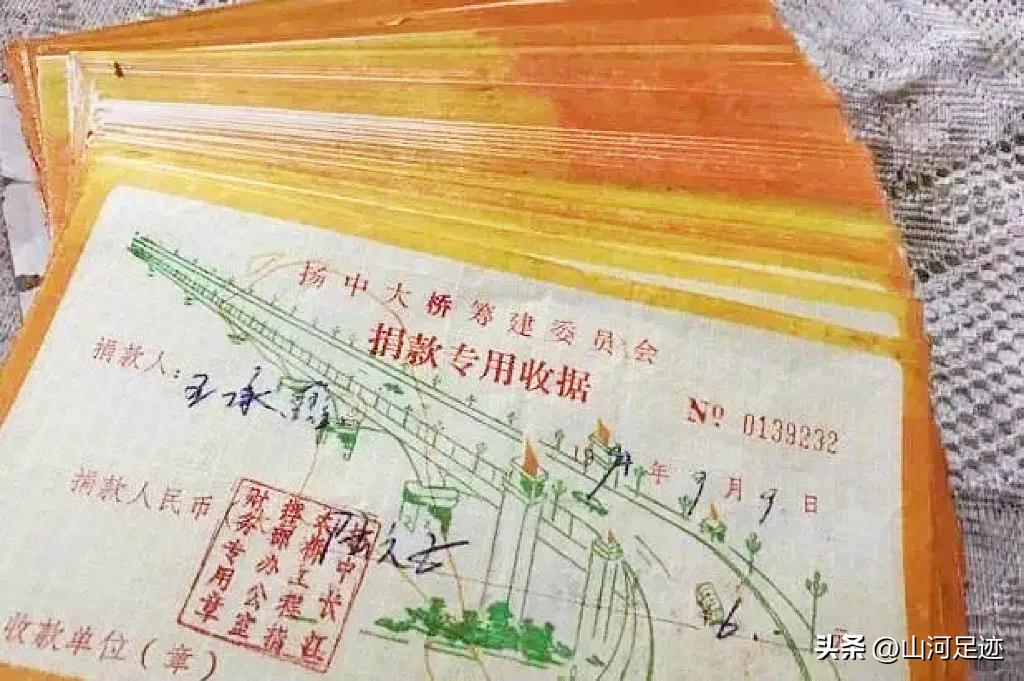 扬中大桥筹建委员会
捐款专用收据
捐款人：王承
№ 0139232
19 年9月9日
捐款人民币
6
扬中长江
大桥工程指
挥部办公室
财务专用章
收款单位(章)
头条 @山河足迹